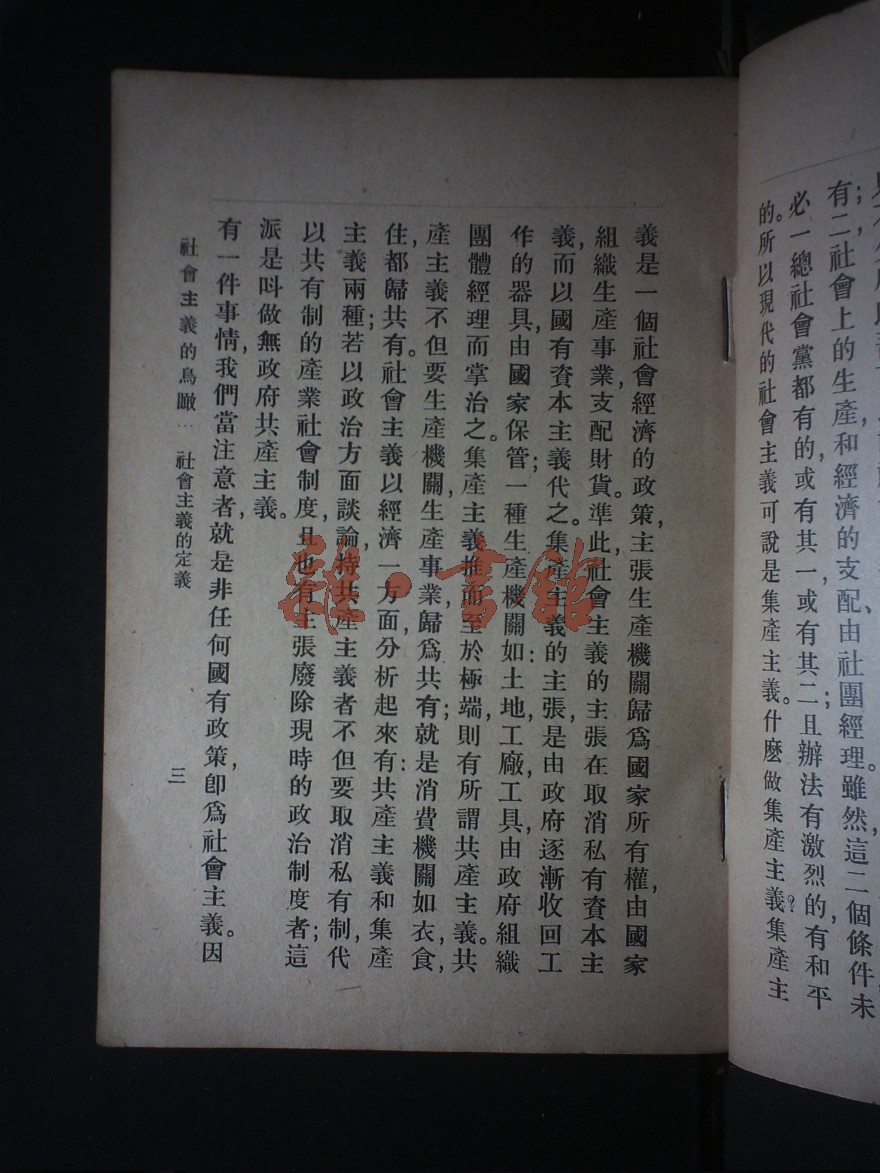 有二，社會上的生產，和經濟的支配由社團經理。雖然這二個條件未
必一總社會黨都有的，或有其一，或有其二；且辦法有激烈的，有和平
的。所以現代的社會主義可說是集產主義。什麼做集產主義？集產主
義是一個社會經濟的政策，主張生產機關歸爲國家所有權，由國家
組織生產事業，支配財貨。準此，社會主義的主張在取消私有資本主
義，而以國有資本主義代之。集產主義的主張，是由政府逐漸收回工
作的器具，由國家保管一種生產機關；如：土地，工廠，工具，由政府組織
團體經理而掌治之。集產主義推而至於極端，則有所謂共產主義。共
產主義不但要生產機關，生產事業，歸爲共有；就是消費機關如衣，食，
住，都歸共有。社會主義以經濟一方面，分析起來有：共產主義和集產
主義兩種；若以政治方面談論，持共產主義者不但要取消私有制，代
以共有制的產業社會制度，且也有主張廢除現時的政治制度者；這
派是呌做無政府共產主義。
有一件事情，我們當注意者，就是非任何國有政策，卽爲社會主義。因
社會主義的鳥瞰：社會主義的定義
三
雜·書館